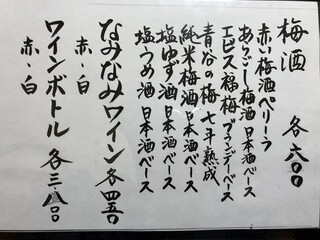 梅酒 各六〇〇
赤い梅酒ペリーラ
あらごし梅酒 日本酒ベース
エビス福梅 ブランデーベース
青谷の梅 七年熟成
純米梅酒 日本酒ベース
塩ゆず酒 日本酒ベース
塩うめ酒 日本酒ベース
なみなみワイン 各四五〇
赤・白
ワインボトル 各三一八〇〇
赤・白